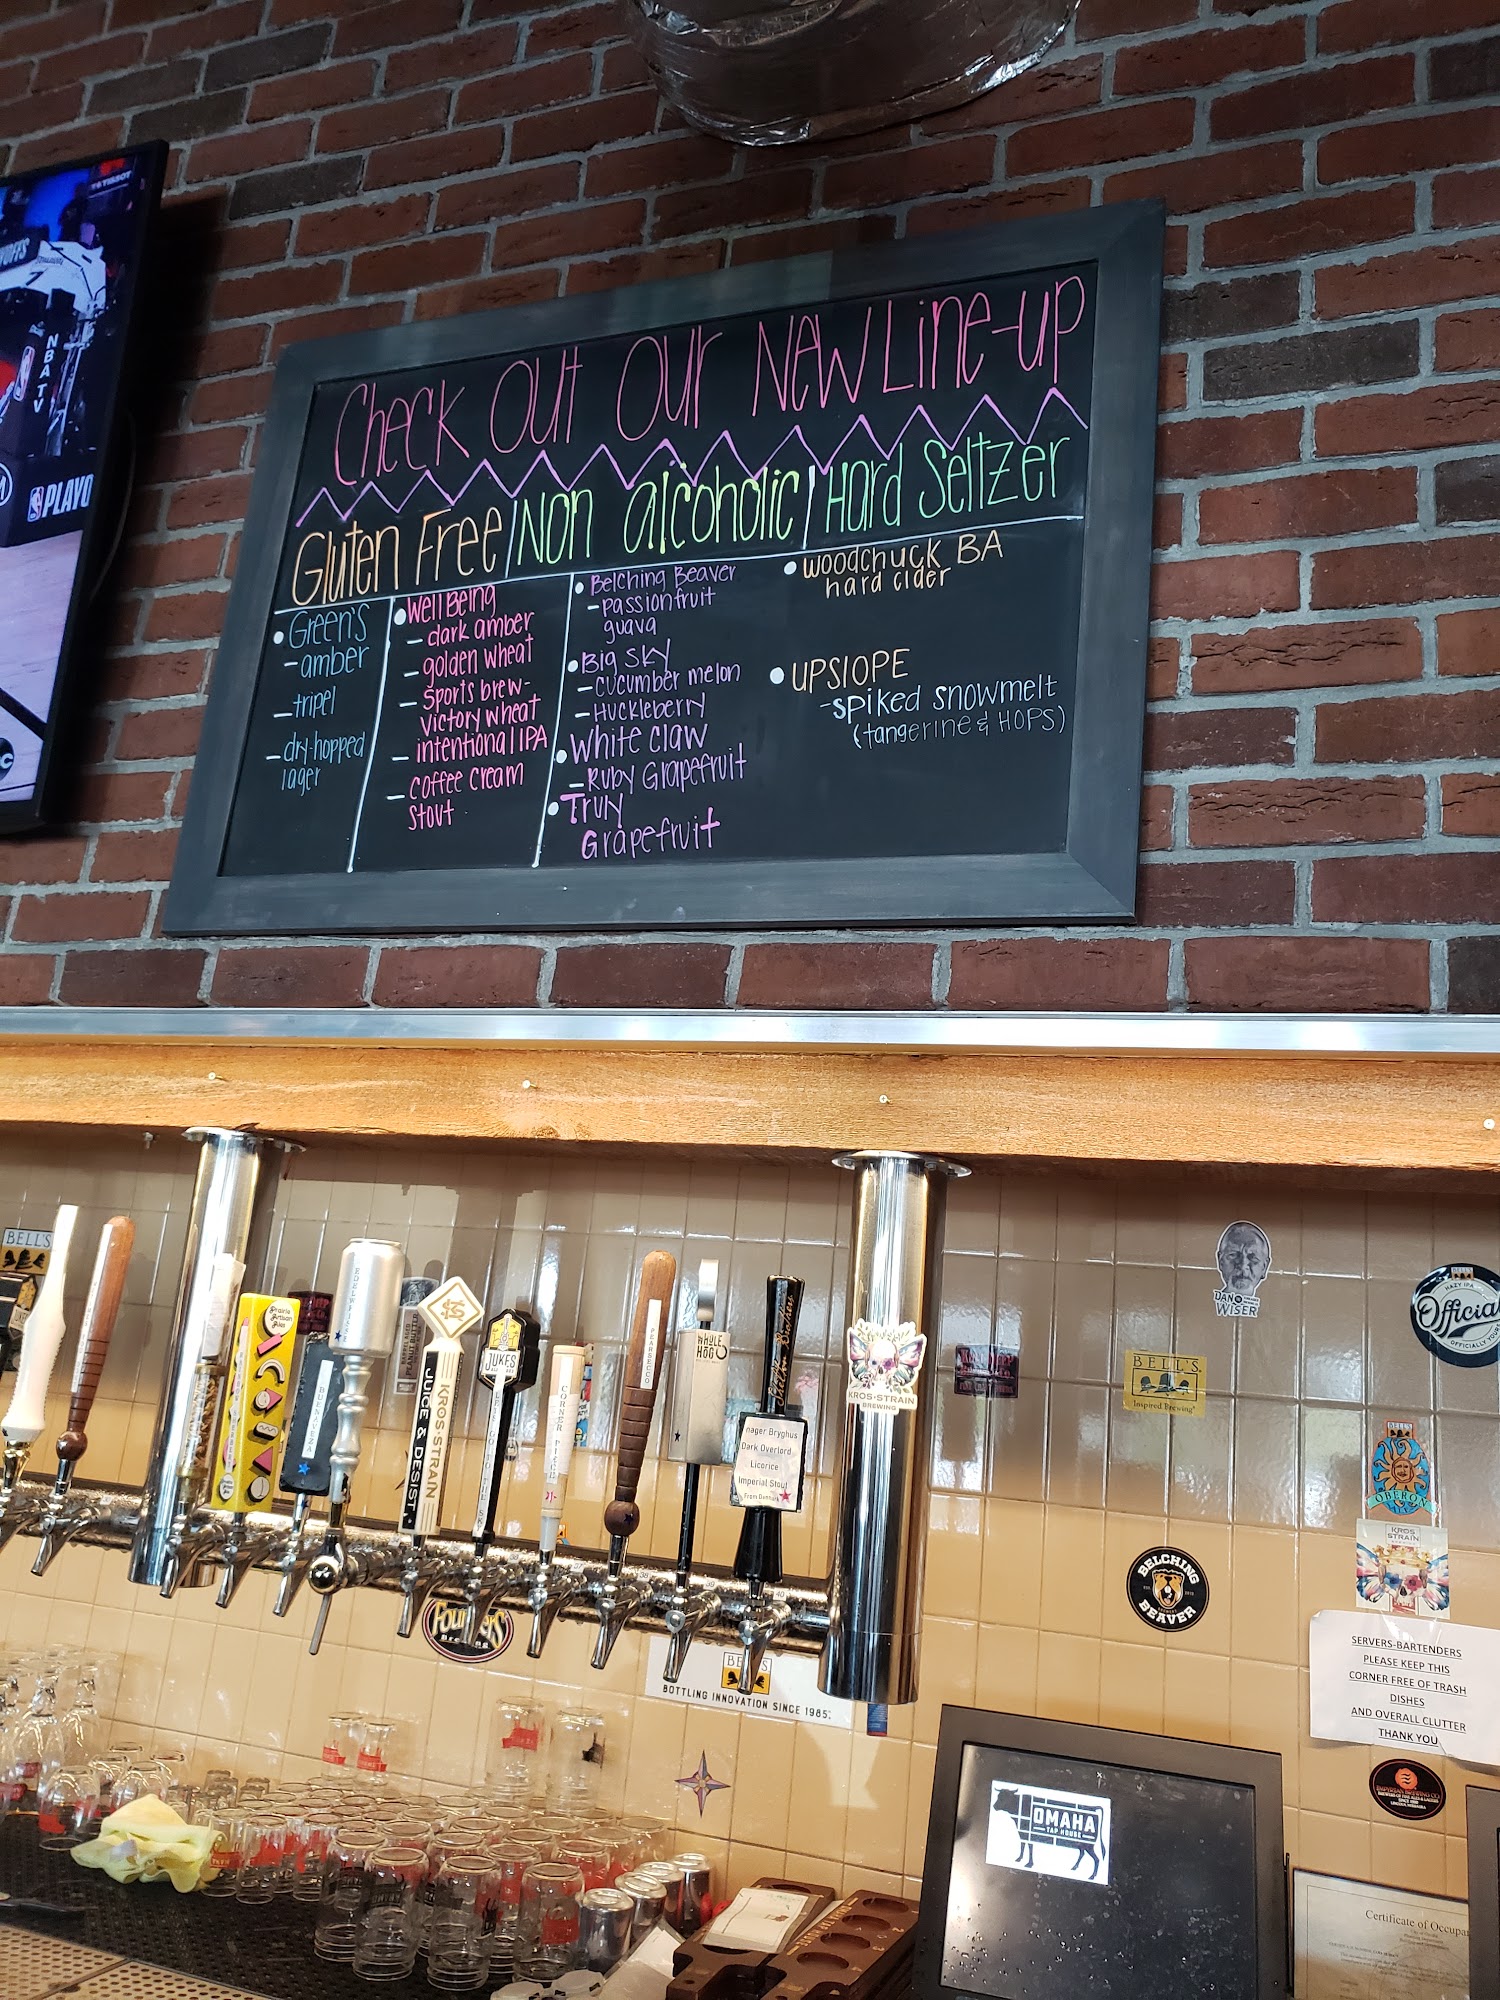 TISSOT
7
NBA TV
PLAYO
Check Out Our New Line-up
Gluten Free | Non alcoholic | Hard Seltzer
Green's
- amber
- tripel
- dry-hopped
lager
Well Being
- dark amber
- golden wheat
- Sports brew-
victory wheat
- intentional IPA
- coffee cream
stout
Belching Beaver
- passionfruit
guava
Big Sky
- cucumber melon
- Huckleberry
White Claw
- Ruby Grapefruit
Truly
Grapefruit
Woodchuck BA
hard cider
UPSLOPE
- spiked snowmelt
(tangerine & HOPS)
BELL'S
Prairie
Artisan
Ales
KROS·STRAIN
JUICE & DESIST
JUKES
PEARSECO
WHOLE
HOG
nager Bryghus
Dark Overlord
Licorice
Imperial Stout
From Denmark
KROS·STRAIN
BREWING
DAN
WISER
BELL'S
HAZY IPA
Official
OFFICIALLY YOURS
BELL'S
Inspired Brewing
BELL'S
OBERON
KROS
STRAIN
BELCHING
BEAVER
FOUNDERS
Brewing
BELL'S
BOTTLING INNOVATION SINCE 1985
SERVERS-BARTENDERS
PLEASE KEEP THIS
CORNER FREE OF TRASH
DISHES
AND OVERALL CLUTTER
THANK YOU
OMAHA
TAP HOUSE
EMPYREAN BREWING CO
Certificate of Occupa